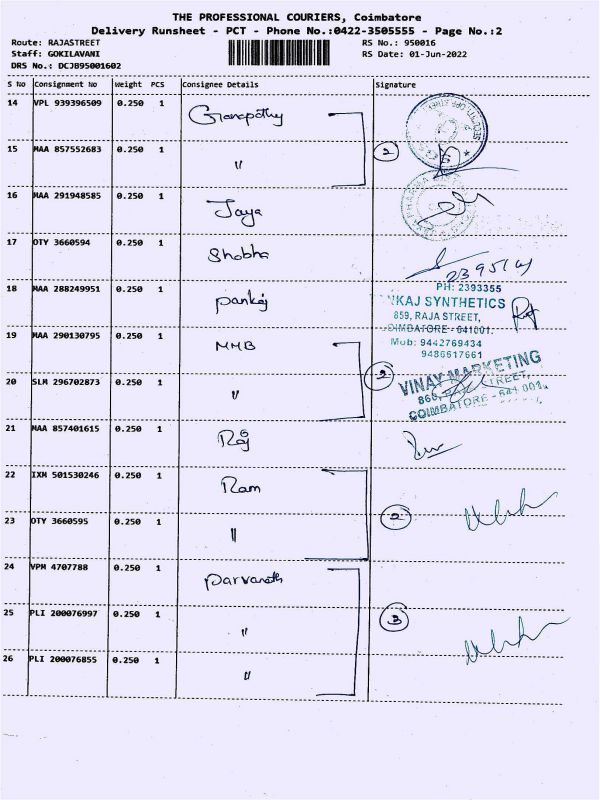 THE PROFESSIONAL COURIERS, Coimbatore
Delivery Runsheet - PCT - Phone No.:0422-3505555 - Page No.:2
Route: RAJASTREET RS No.: 950016
Staff: GOKILAVANI RS Date: 01-Jun-2022
DRS No.: DCJB95001602
S No Consignment No Weight PCS Consignee Details Signature
14 VPL 939396509 0.250 1 Ganapathy
15 MAA 857552683 0.250 1 " 2
16 MAA 291948585 0.250 1 Jaya
17 OTY 3660594 0.250 1 Shobha
18 MAA 288249951 0.250 1 Pankaj
PH: 2393355
NKAJ SYNTHETICS
859, RAJA STREET,
OIMBATORE - 641001.
Mob: 9442769434
9486617661
19 MAA 290130795 0.250 1 MMB
20 SLM 296702873 0.250 1 " 2
VINAY MARKETING
STREET,
COIMBATORE - 641 001.
21 MAA 857401615 0.250 1 Raj
22 IXM 501530246 0.250 1 Ram
23 OTY 3660595 0.250 1 " 2
24 VPM 4707788 0.250 1 Parvanath
25 PLI 200076997 0.250 1 " 3
26 PLI 200076855 0.250 1 "